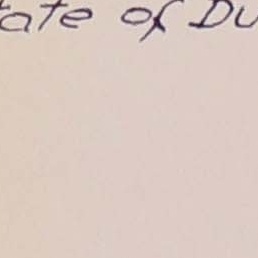 ate of Du